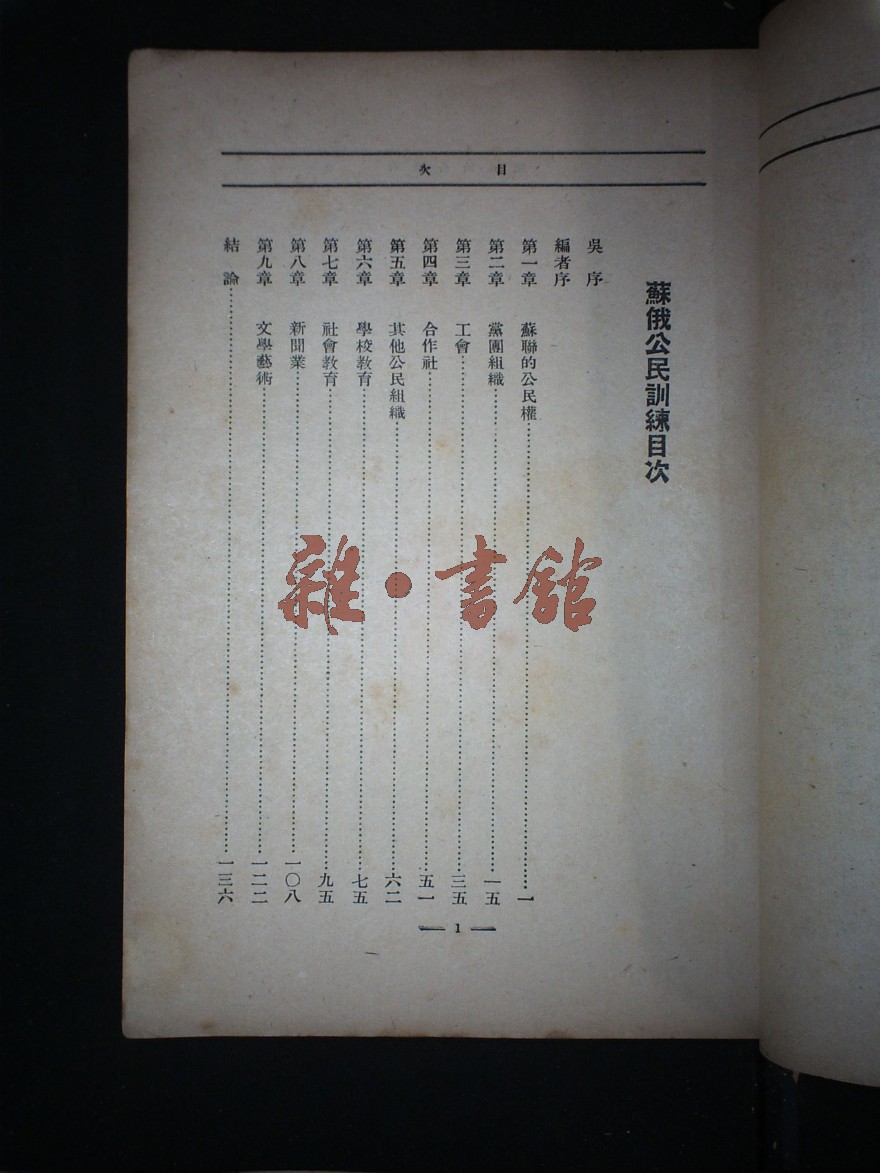 目次
蘇俄公民訓練目次
吳序
編者序
第一章 蘇聯的公民權……一
第二章 黨團組織……一五
第三章 工會……三五
第四章 合作社……五一
第五章 其他公民組織……六二
第六章 學校教育……七五
第七章 社會教育……九五
第八章 新聞業……一〇八
第九章 文學藝術……一二二
結論……一三六
1
雜·書館